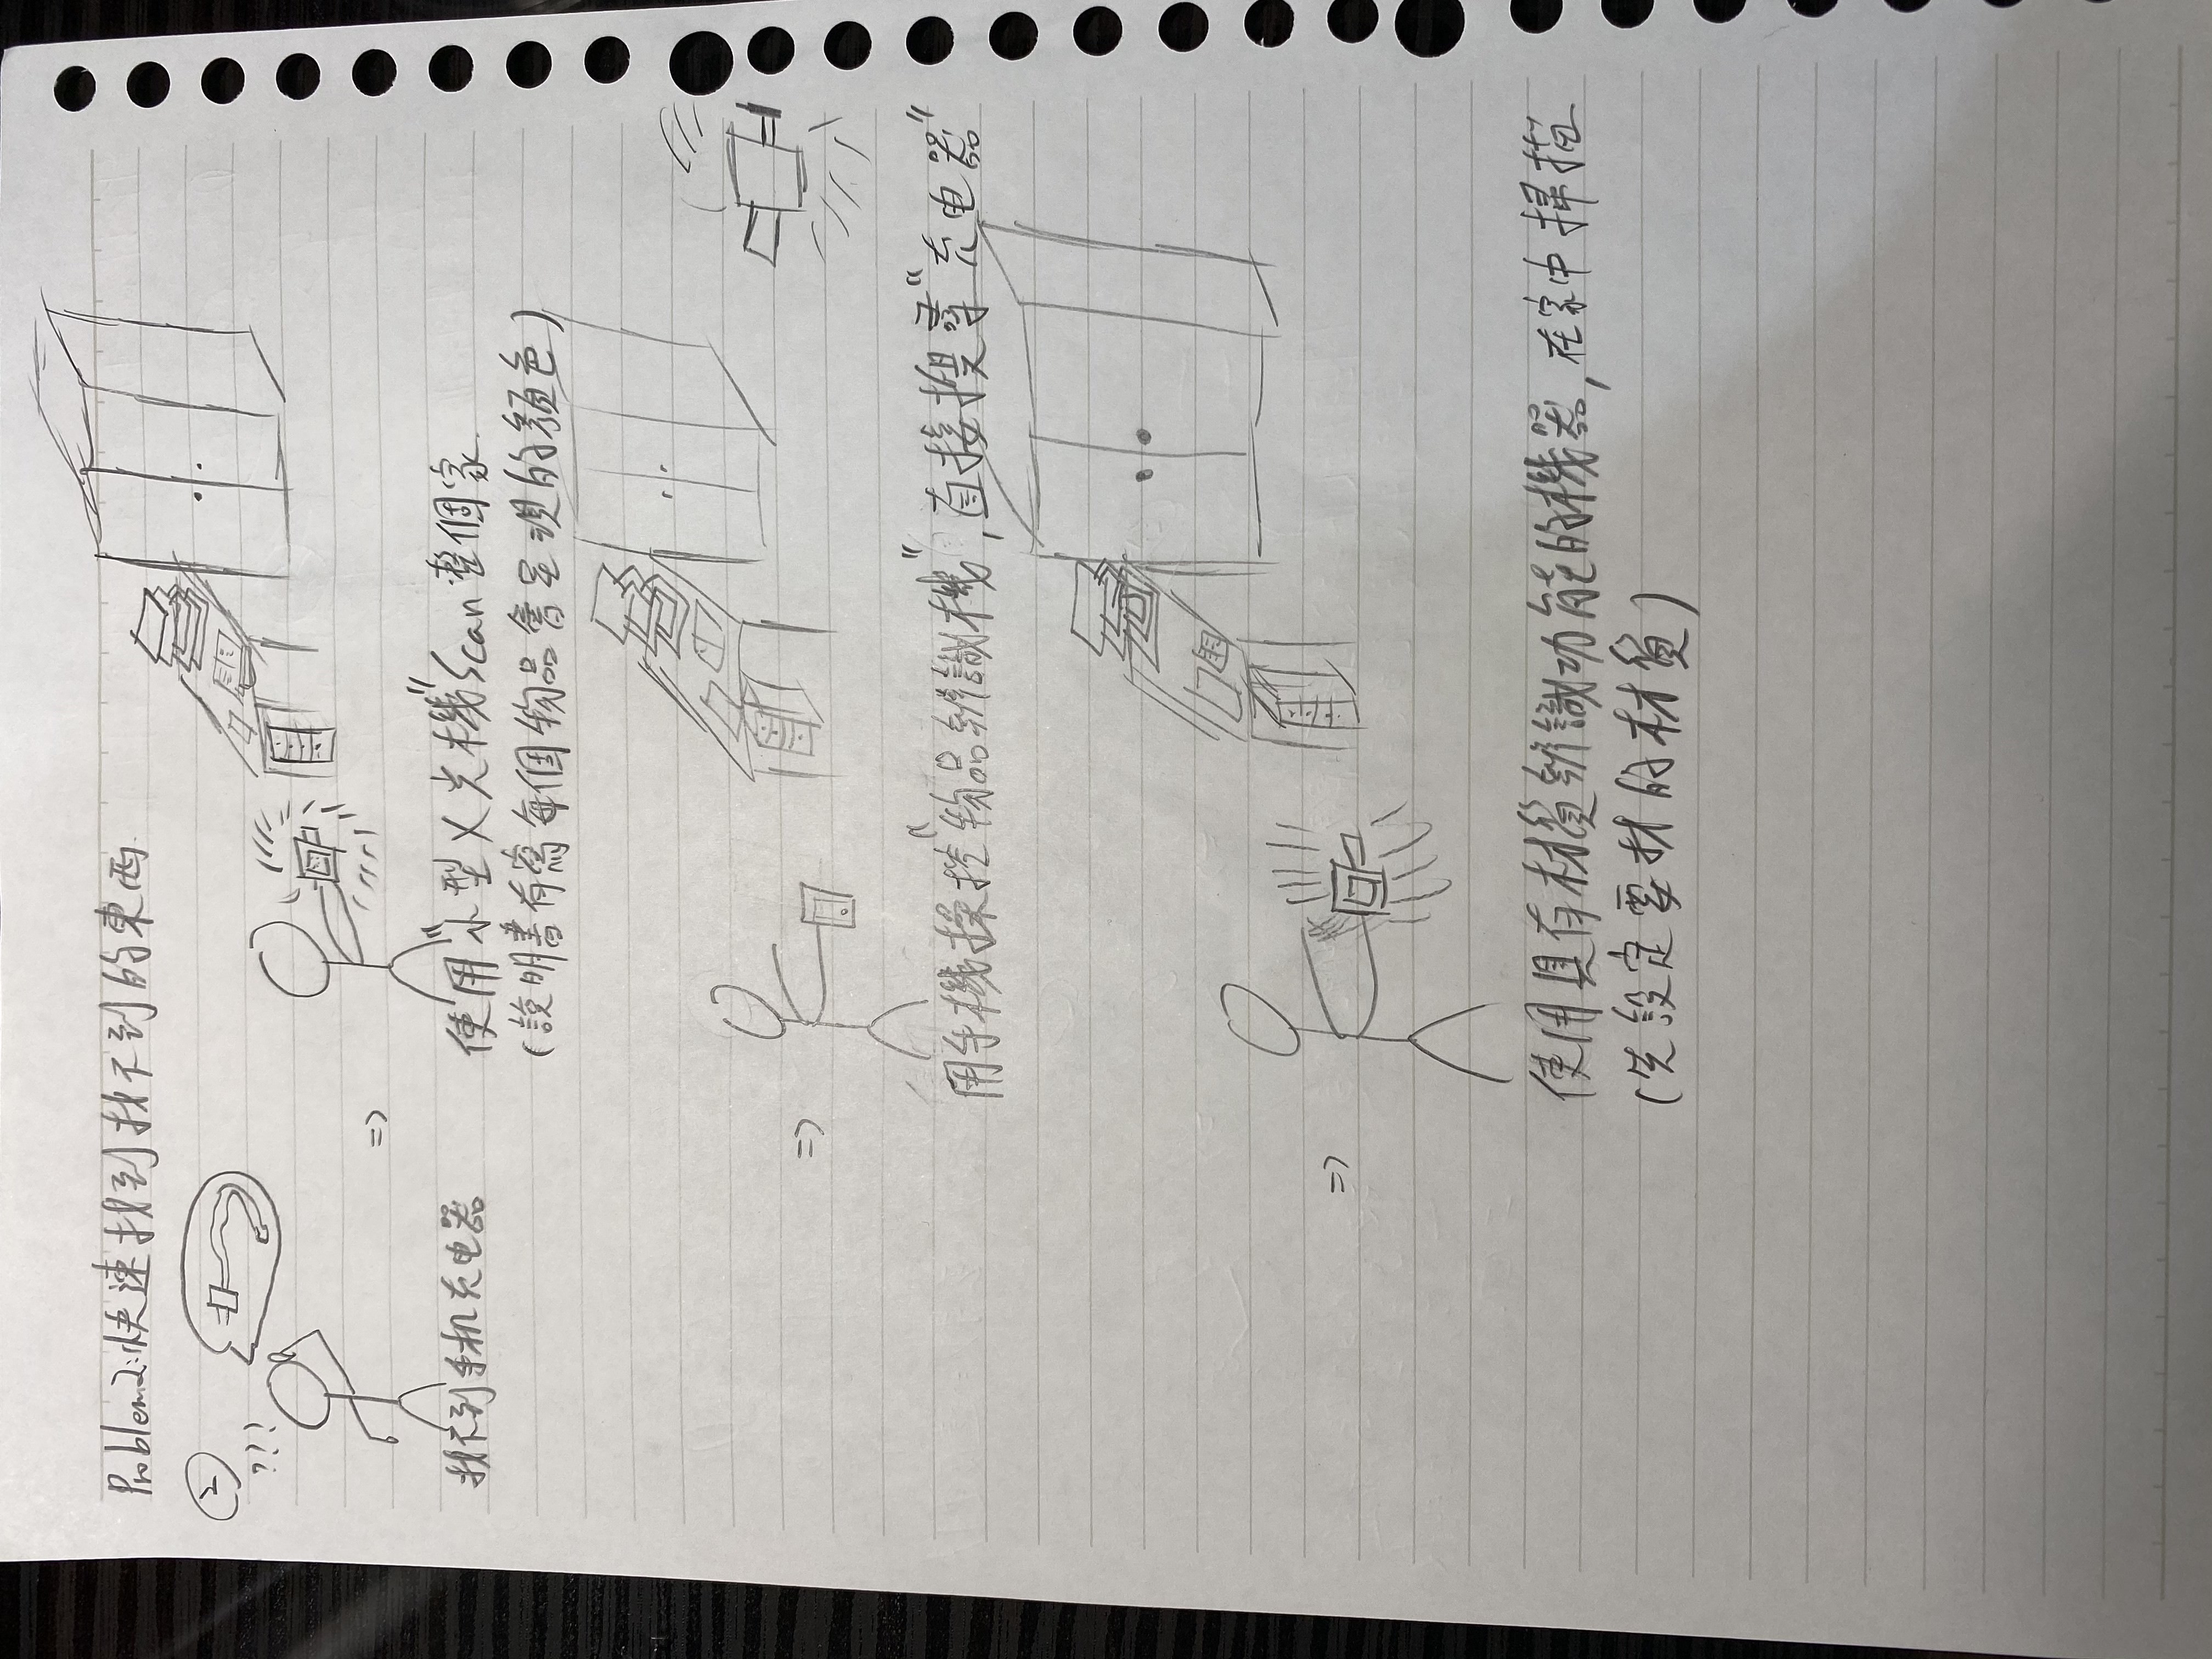 Problem2:快速找到找不到的東西
②
???
找不到手机充电器
=>
使用"小型X光機"Scan整個家.
(說明書有寫每個物品會呈現的顏色)
=>
用手機操控"物品辨識機",直接搜尋"充电器"
=>
使用具有材質辨識功能的機器,在家中掃描
(先設定要找的材質)